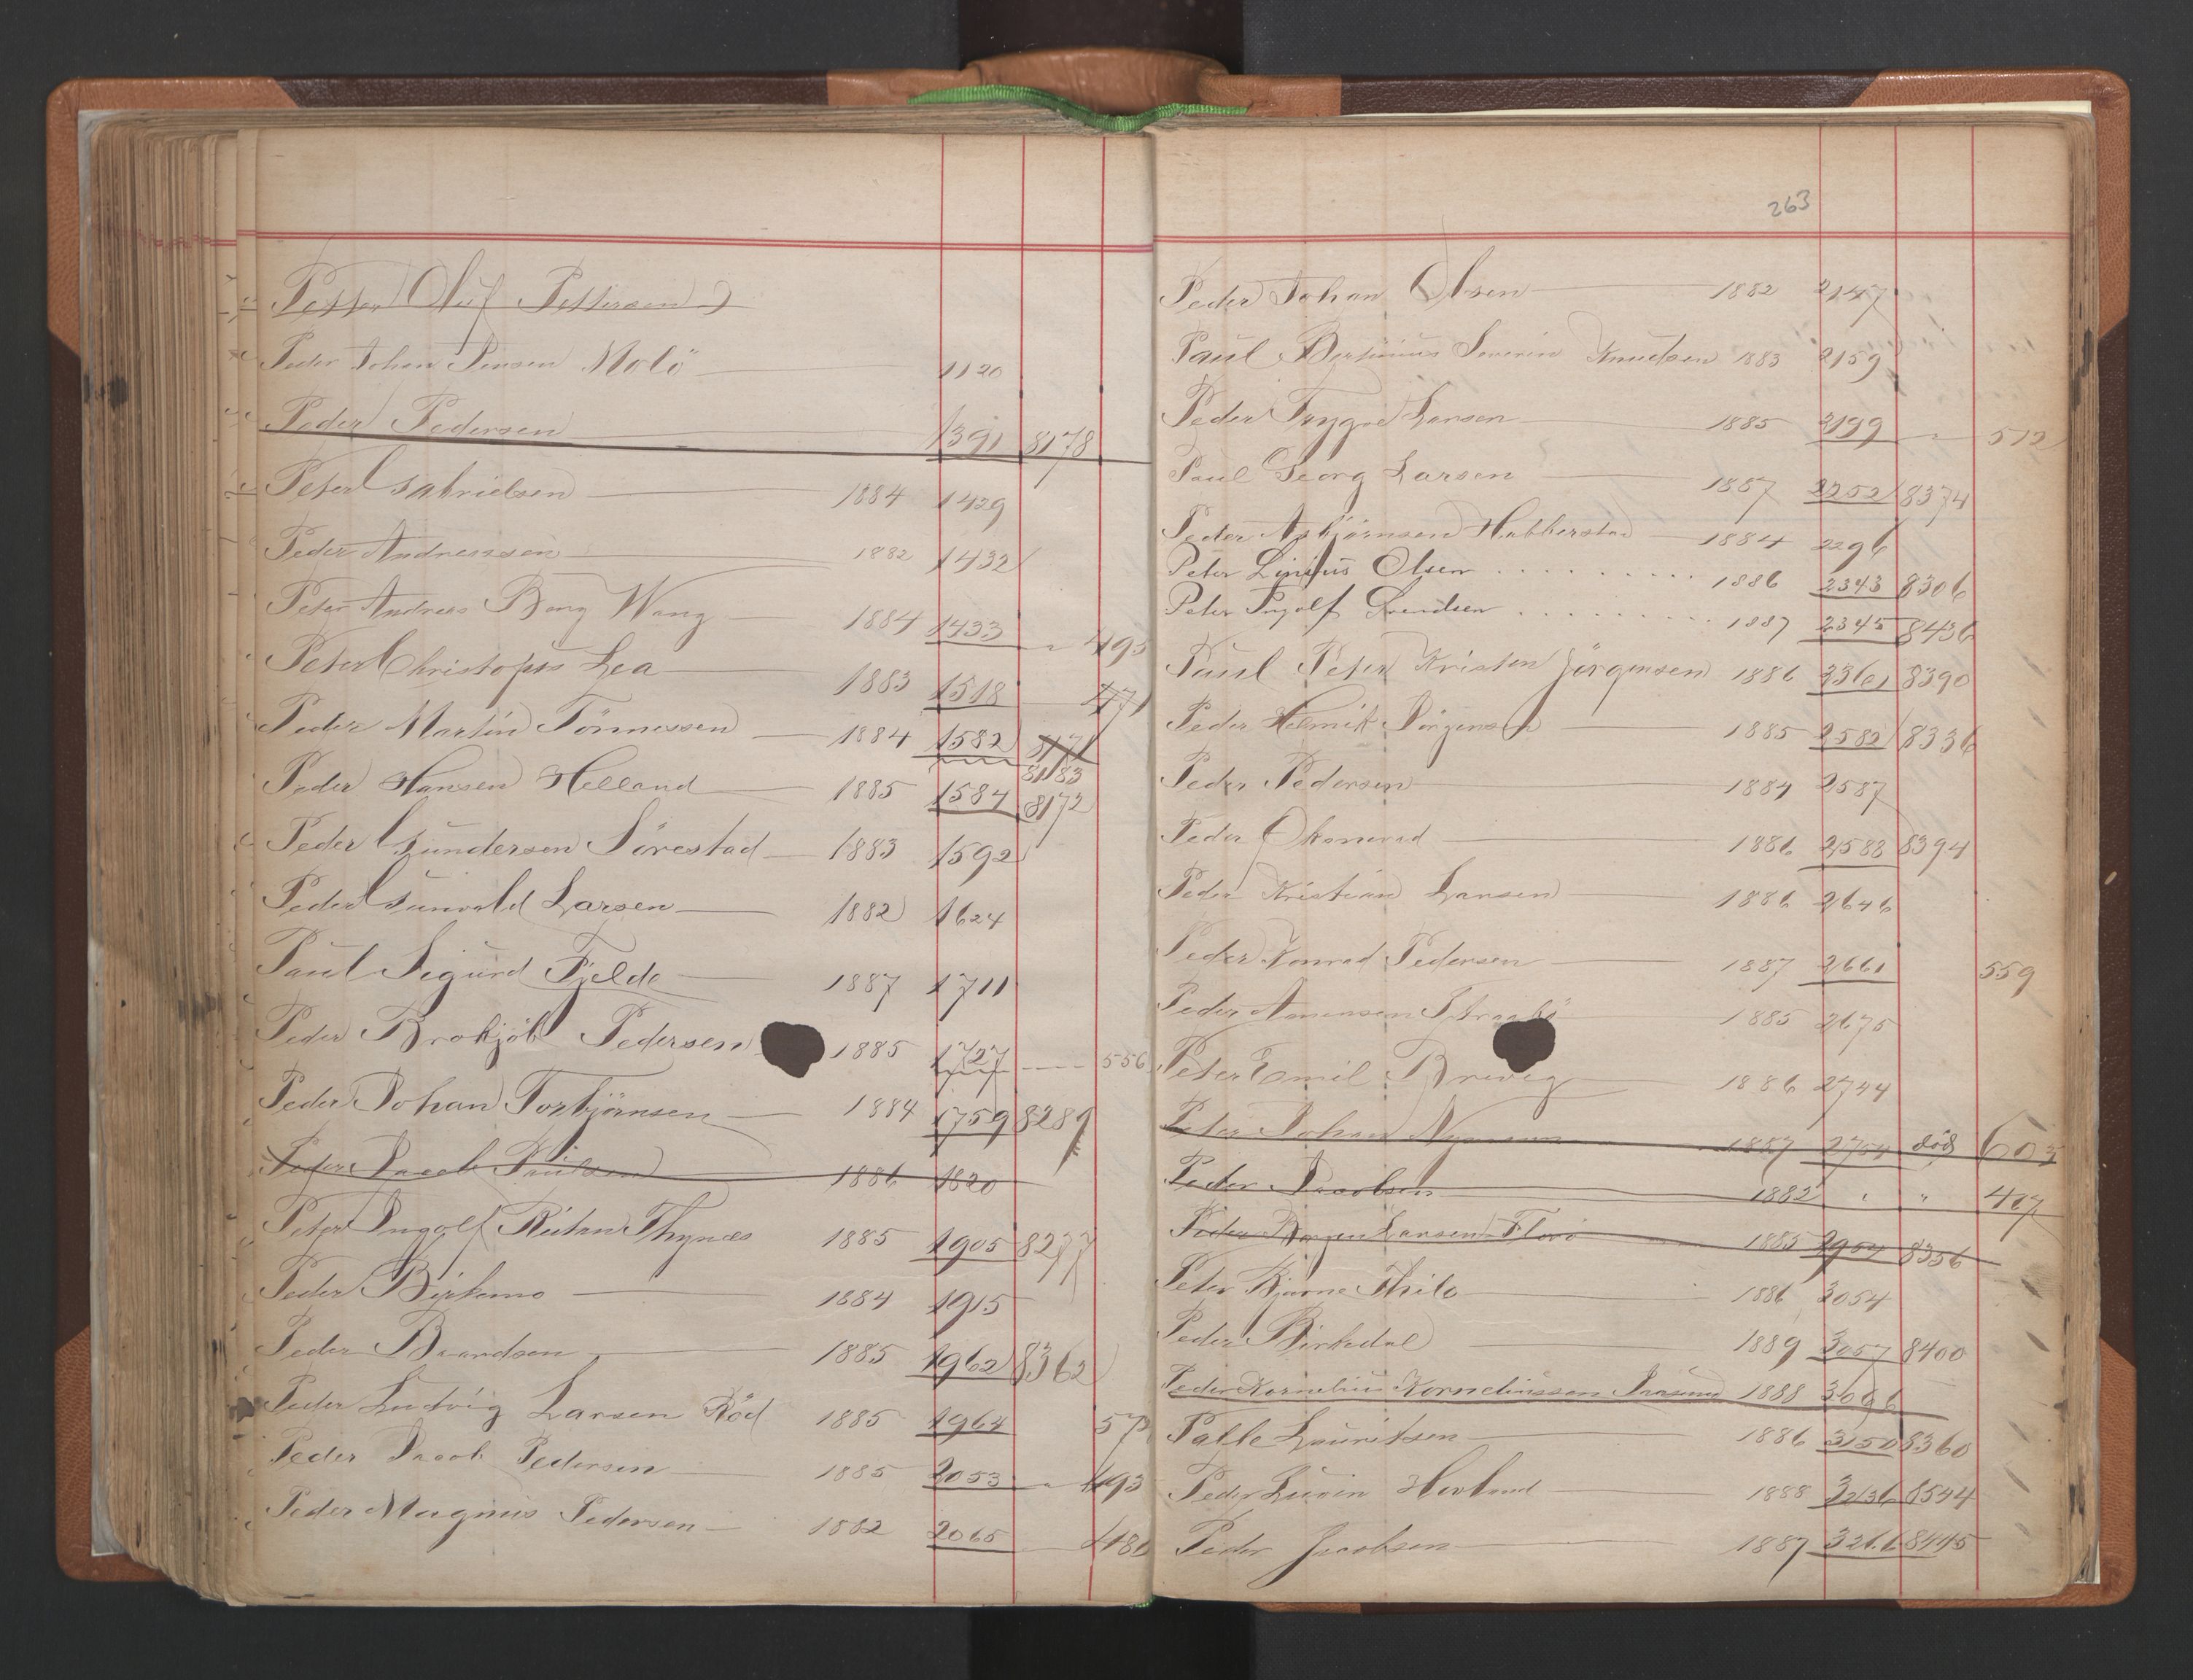 Petter Oluf Pettersen
Peder Johan Jensen Molö 1120
Peder Pedersen 1391 8178
Peter Gabrielsen 1884 1429
Peder Andreassen 1882 1432
Peter Andreas Berg Wang 1884 1433 " 495
Peter Christopher Lea 1883 1518 471
Peder Martin Tönnessen 1884 1582 8171 8183
Peder Hansen Helland 1885 1584 8172
Peder Gundersen Sörestad 1883 1592
Peder Gunvald Larsen 1882 1624
Paul Sigurd Fjelde 1887 1711
Peder Pedersen 1885 1727 556
Peder Johan Torbjörnsen 1884 1759 8289
Peder Jacob Paulsen 1886 1820
Peter Ingolf Thynæs 1885 1905 8277
Peder Birkemo 1884 1915
Peder Baardsen 1885 1962 8362
Peder Ludvig Larsen Röd 1885 1964 57
Peder Jacob Pedersen 1885 2053 " 493
Peder Magnus Pedersen 1882 2065 480
263
Peder Johan Olsen 1882 2147
Paul Bertinius Severin Knudsen 1883 2159
Peder Trygve Larsen 1885 2199 " 512
Paul Georg Larsen 1887 2252 8374
Peder Asbjörnsen Habberstad 1884 2296
Peter Linius Olsen 1886 2343 8306
Peter Ingolf Svendsen 1887 2345 8436
Paul Peter Kristen Jörgensen 1886 2361 8390
Peder Helmik Jörgensen 1885 2582 8336
Peder Pedersen 1884 2587
Peder Okonerud 1886 2588 8394
Peder Kristian Larsen 1886 2646
Peder Konrad Pedersen 1887 2661 559
Peder 1885 2675
Peter Emil Brevig 1886 2744
Peter Johan 1887 2754 död 603
Peder Jacobsen 1882 " " 407
Peder Larsen Florö 1885 2954 8356
Peter Bjarne Thilo 1886 3054
Peder Birkedal 1889 3057 8400
Peder Kornelius Korneliussen 1888 3096
Palle Lauritsen 1886 3150 8360
Peder Hovland 1888 3236 8544
Peder Jacobsen 1887 3266 8445